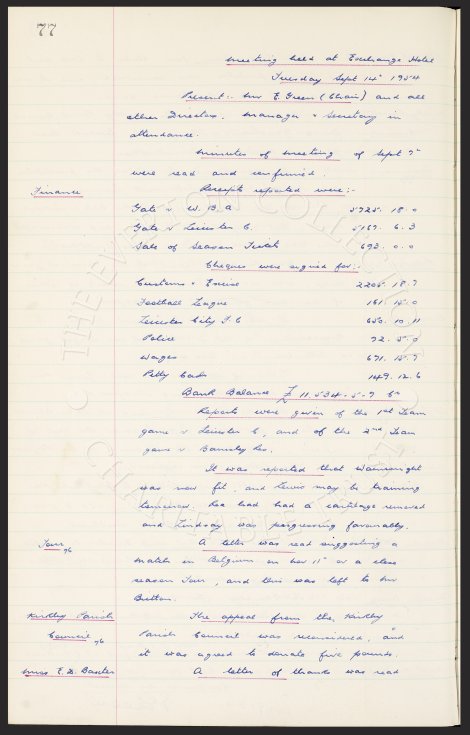 77
Meeting held at Exchange Hotel
Tuesday Sept 14th 1954
Present:- Mr E. Green (Chair) and all
other Directors, Manager & Secretary in
attendance.
Minutes of meeting of Sept 7th
were read and confirmed.
Finance
Receipts reported were:-
Gate v. W.B.A. 5725. 18. 0
Gate v Leicester C. 5169. 6. 3
Sale of Season Tickets 693. 0. 0
Cheques were signed for:-
Customs & Excise 2205. 18. 7
Football League 161. 15. 0
Leicester City F.C 650. 10. 11
Police 72. 5. 0
Wages 671. 15. 7
Petty Cash 149. 12. 6
Bank Balance £11,534-5-9 Cr
Reports were given of the 1st Team
game v Leicester C, and of the 2nd Team
game v Barnsley Res.
It was reported that Wainwright
was now fit, and Lewis may be training
tomorrow. Rea had had a cartilage removed
and Lindsay was progressing favourably.
Tour
A letter was read suggesting a
match in Belgium on Nov 11th or a close
season Tour, and this was left to Mr
Britton.
Kirkby Parish
Council
The appeal from the Kirkby
Parish Council was reconsidered, and
it was agreed to donate five pounds.
Miss E. D. Baxter
A letter of thanks was read
THE EVERTON COLLECTION
CHARITABLE TRUST